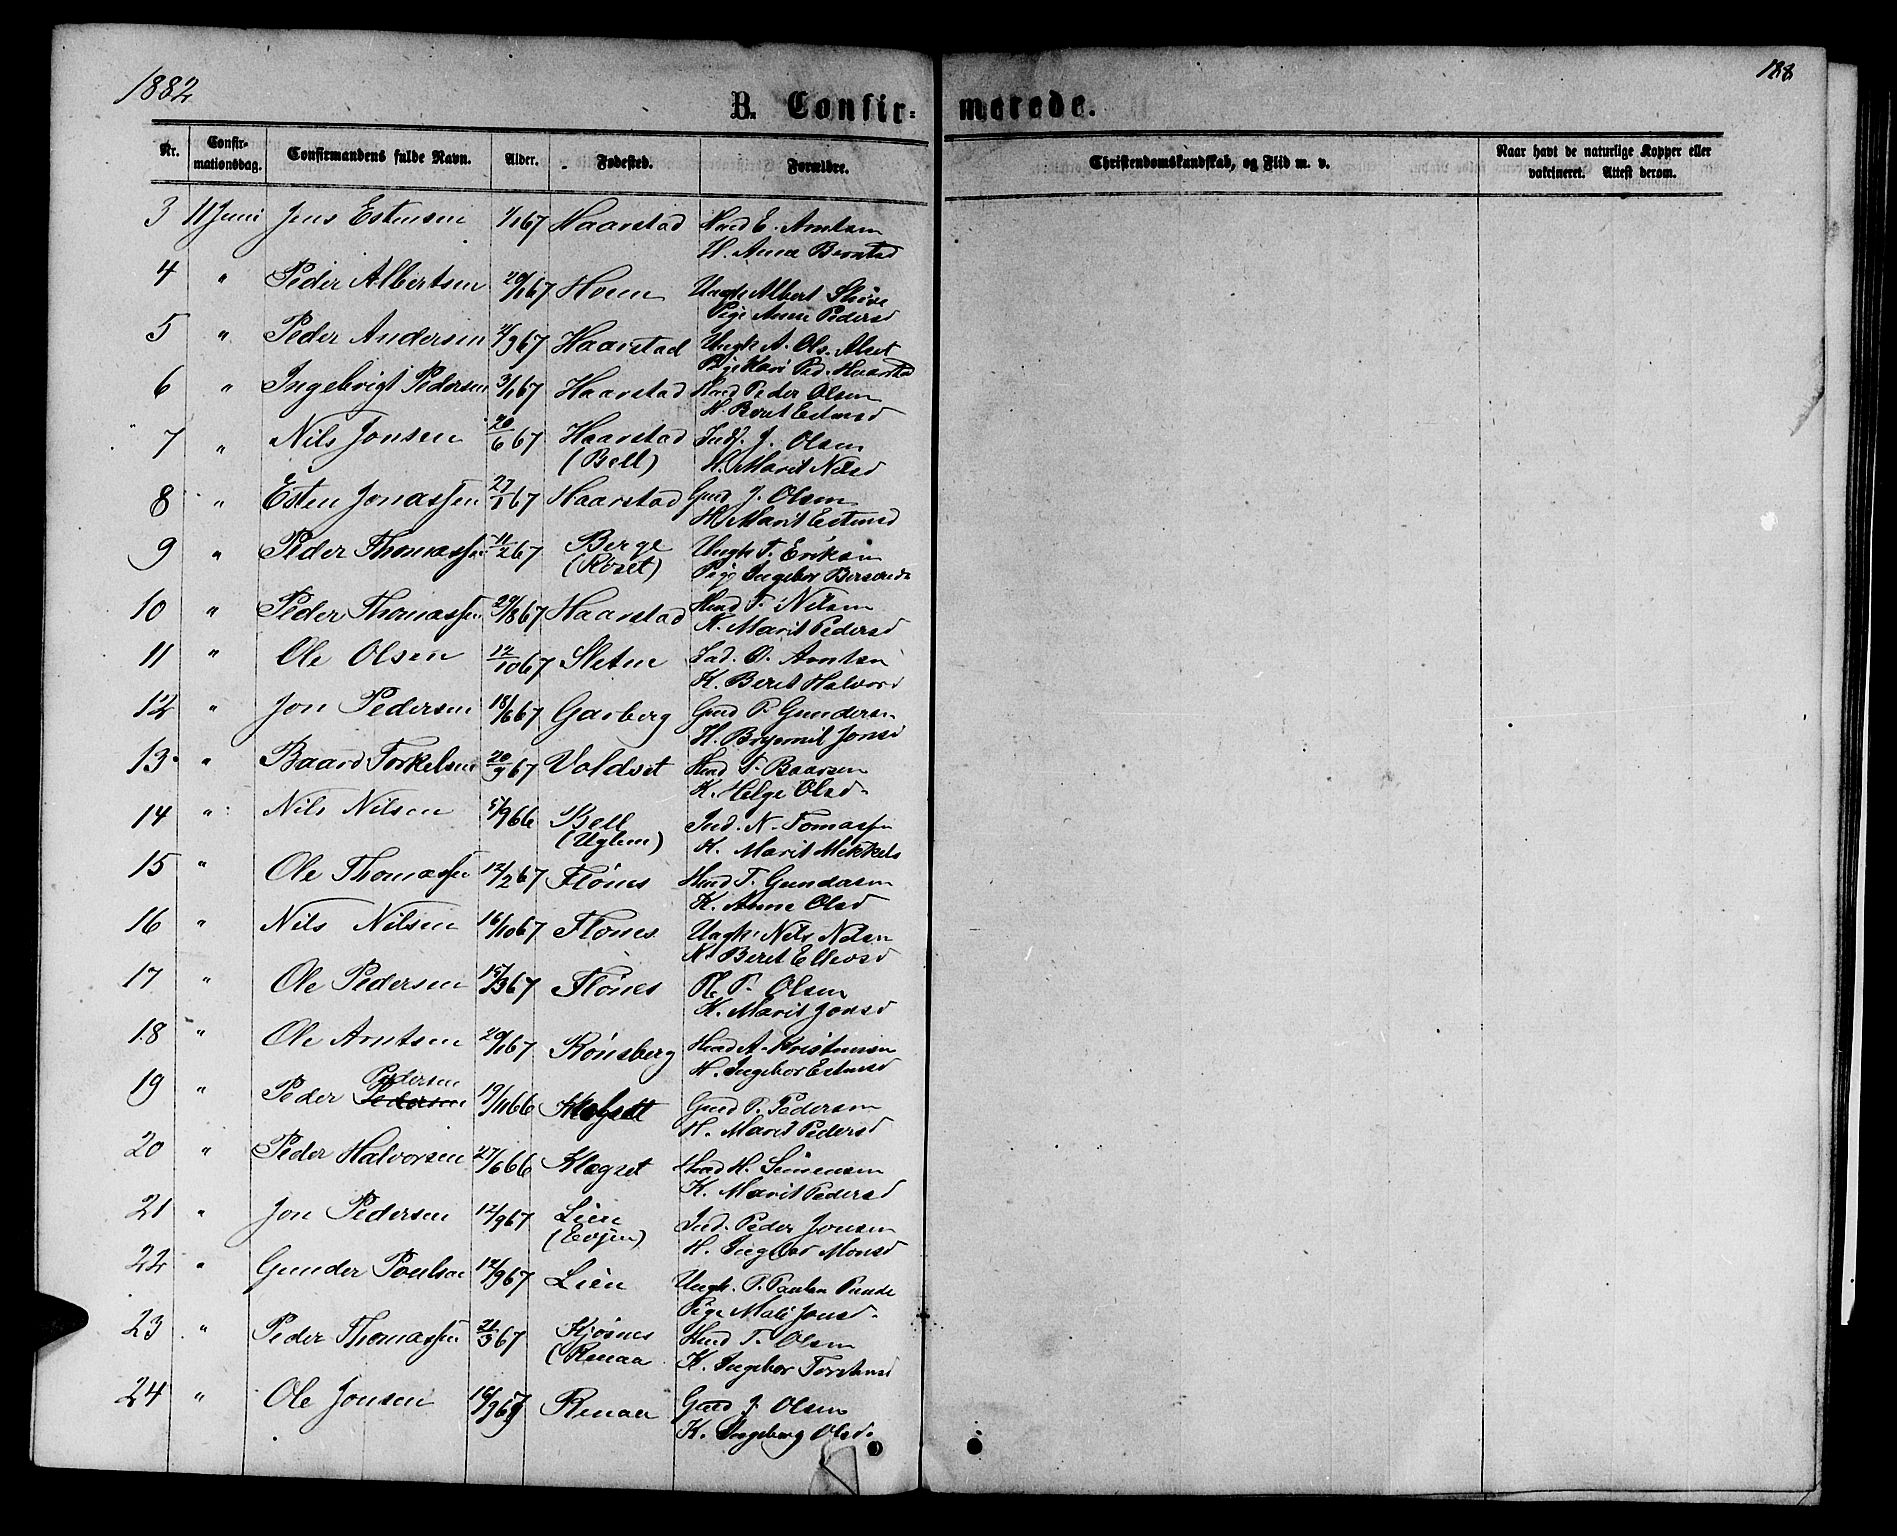 1882
188
B. Confirmerede.
Nr. Confirmationsdag. Confirmandens fulde Navn. Alder. Fødested. Forældre. Christendomskundskab, og Flid m. v. Naar havt de naturlige Kopper eller vakcineret. Attest derom.
3 11 Juni Jens Estensen 1/1 67 Haarstad E. Arntsen
H. Anne
4 " Peder Albertsen 20/1 67 Ungk Albert
Pige Anne Pedersd
5 " Peder Andersen 67 Haarstad Ungk A. Ols. Alset
Pige Kari Ped. Haarstad
6 " Ingebrigt Pedersen 3/1 67 Haarstad Peder Olsen
H. Beret Estensd
7 " Nils Jonsen 20/6 67 Haarstad J. Olsen
(Bell) H. Marit Nilsd
8 " Esten Jonassen 27/1 67 Haarstad Gaard J. Olsen
H. Marit Estensd
9 " Peder Thomassen 11/2 67 Berge Ungk T. Eriksen
(Roset) Pige Ingebor
10 " Peder Thomassen 29/8 67 Haarstad T. Nilsen
K. Marit Pedersd
11 " Ole Olsen 12/10 67 Sletne O. Arntsen
K. Beret Halvord
12 " Jon Pedersen 18/6 67 Garberg Gaard P. Gundersen
H. Jonsd
13 " Baard Torkelsen 20/9 67 Valdset T. Baarsen
K. Helge Olsd
14 " Nils Nilsen 5/9 66 Bell Ind. N. Tomassen
(Uglem) K. Marit Mikkels
15 " Ole Thomassen 12/2 67 Flönes T. Gundersen
K. Anne Olsd
16 " Nils Nilsen 16/10 67 Flönes Ungk. Nils Nilsen
K. Beret Ellevsd
17 " Ole Pedersen 15/3 67 Flönes P. Olsen
K. Marit Jonsd
18 " Ole Arntsen 20/1 67 Rönsberg A. Kristensen
H. Ingebor Estensd
19 " Peder Pedersen Pedersen 19/11 66 Klegset Gaard P. Pedersen
H. Marit Pedersd
20 " Peder Halvorsen 27/6 66 Klegset H. Simensen
K. Marit Pedersd
21 " Jon Pedersen 12/9 67 Lien Ind. Peder Jonsen
(Evjen) H. Ingebor Monsd
22 " Gunder Poulsen 12/9 67 Lien Ungk. P. Paulsen
Pige Mali Jonsd
23 " Peder Thomassen 67 Kjösnes T. Olsen
(Renaa K. Ingebor Torstensd
24 " Ole Jonsen 67 Renaa Gaard J. Olsen
K. Ingeborg Olsd.